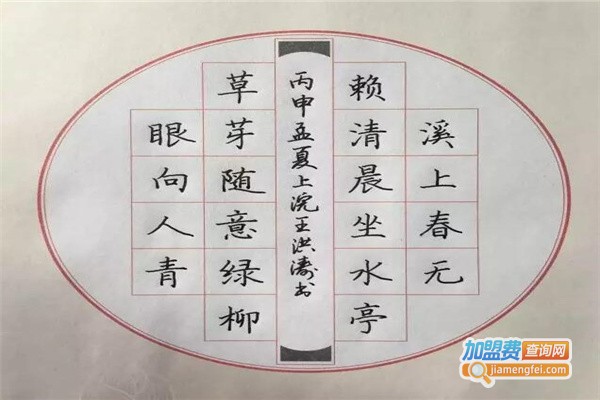 溪上春无
赖清晨坐水亭
草芽随意绿柳
眼向人青
丙申孟夏上浣王洪涛书
加盟费查询网
jiamengfei.com